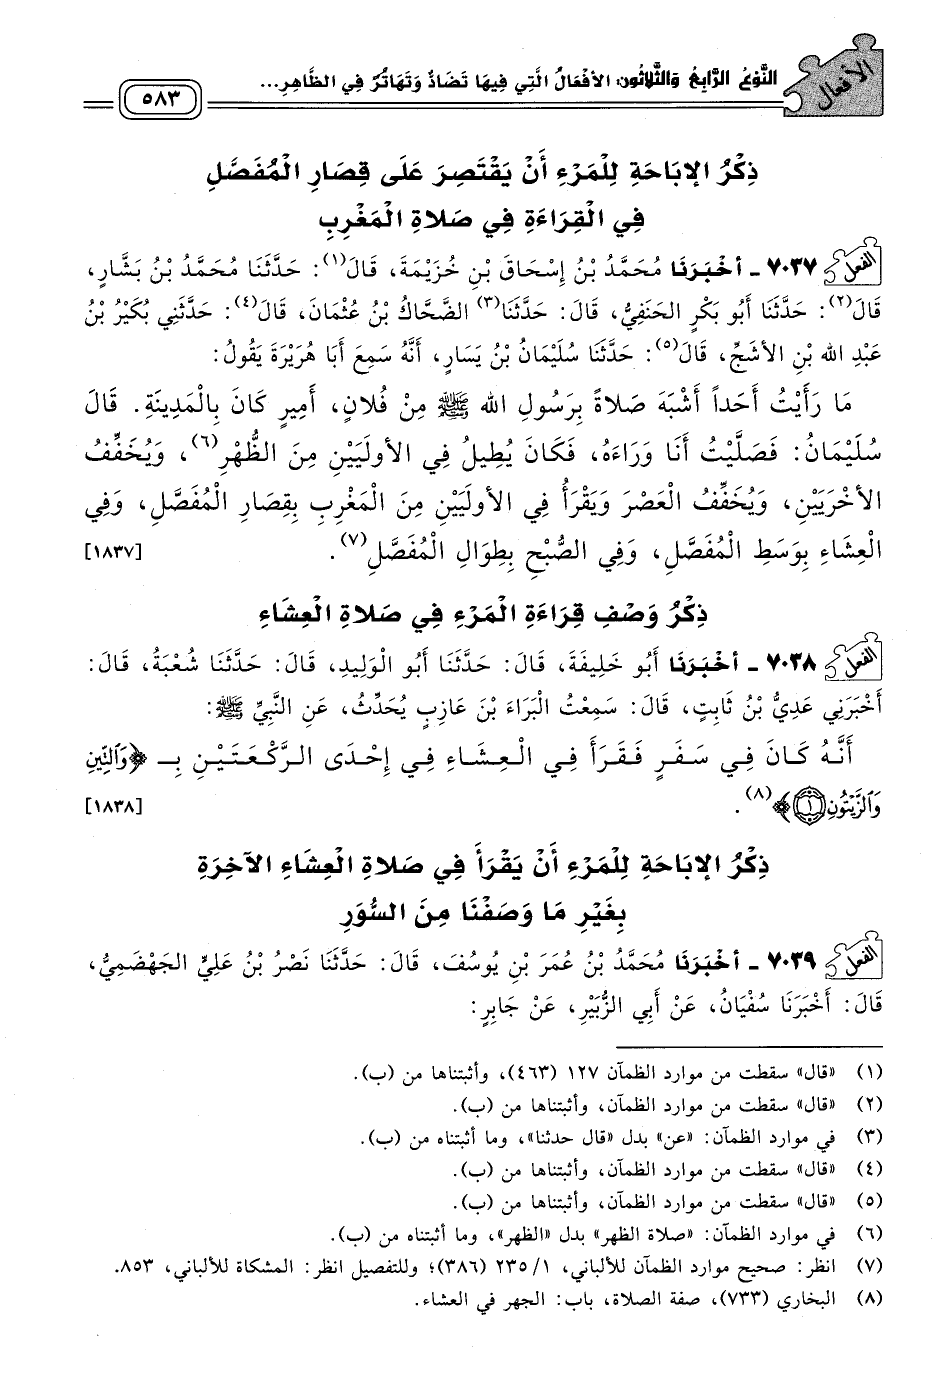 الأفعال
النَّوْعُ الرَّابِعُ وَالثَّلاثُونَ: الأفْعَالُ الَّتِي فِيهَا تَضَادٌّ وَتَهَاتُرٌ فِي الظَّاهِرِ...
٥٨٣
ذِكْرُ الإبَاحَةِ لِلْمَرْءِ أَنْ يَقْتَصِرَ عَلَى قِصَارِ الْمُفَصَّلِ
فِي الْقِرَاءَةِ فِي صَلاةِ الْمَغْرِبِ
الفعل ٧٠٣٧ - أخْبَرَنَا مُحَمَّدُ بْنُ إِسْحَاقَ بْنِ خُزَيْمَةَ، قَالَ(١): حَدَّثَنَا مُحَمَّدُ بْنُ بَشَّارٍ،
قَالَ(٢): حَدَّثَنَا أَبُو بَكْرٍ الحَنَفِيُّ، قَالَ: حَدَّثَنَا(٣) الضَّحَّاكُ بْنُ عُثْمَانَ، قَالَ(٤): حَدَّثَنِي بُكَيْرُ بْنُ
عَبْدِ الله بْنِ الأشَجِّ، قَالَ(٥): حَدَّثَنَا سُلَيْمَانُ بْنُ يَسَارٍ، أَنَّهُ سَمِعَ أَبَا هُرَيْرَةَ يَقُولُ:
مَا رَأَيْتُ أَحَداً أَشْبَهَ صَلاةً بِرَسُولِ الله ﷺ مِنْ فُلانٍ، أَمِيرٍ كَانَ بِالْمَدِينَةِ. قَالَ
سُلَيْمَانُ: فَصَلَّيْتُ أَنَا وَرَاءَهُ، فَكَانَ يُطِيلُ فِي الأولَيَيْنِ مِنَ الظُّهْرِ(٦)، وَيُخَفِّفُ
الأخْرَيَيْنِ، وَيُخَفِّفُ الْعَصْرَ وَيَقْرَأُ فِي الأولَيَيْنِ مِنَ الْمَغْرِبِ بِقِصَارِ الْمُفَصَّلِ، وَفِي
الْعِشَاءِ بِوَسَطِ الْمُفَصَّلِ، وَفِي الصُّبْحِ بِطِوَالِ الْمُفَصَّلِ(٧). [١٨٣٧]
ذِكْرُ وَصْفِ قِرَاءَةِ الْمَرْءِ فِي صَلاةِ الْعِشَاءِ
الفعل ٧٠٣٨ - أخْبَرَنَا أَبُو خَلِيفَةَ، قَالَ: حَدَّثَنَا أَبُو الْوَلِيدِ، قَالَ: حَدَّثَنَا شُعْبَةُ، قَالَ:
أَخْبَرَنِي عَدِيُّ بْنُ ثَابِتٍ، قَالَ: سَمِعْتُ الْبَرَاءَ بْنَ عَازِبٍ يُحَدِّثُ، عَنِ النَّبِيِّ ﷺ:
أَنَّهُ كَانَ فِي سَفَرٍ فَقَرَأَ فِي الْعِشَاءِ فِي إِحْدَى الرَّكْعَتَيْنِ بِـ ﴿وَالتِّينِ
وَالزَّيْتُونِ ١﴾(٨). [١٨٣٨]
ذِكْرُ الإبَاحَةِ لِلْمَرْءِ أَنْ يَقْرَأَ فِي صَلاةِ الْعِشَاءِ الآخِرَةِ
بِغَيْرِ مَا وَصَفْنَا مِنَ السُّوَرِ
الفعل ٧٠٣٩ - أخْبَرَنَا مُحَمَّدُ بْنُ عُمَرَ بْنِ يُوسُفَ، قَالَ: حَدَّثَنَا نَصْرُ بْنُ عَلِيٍّ الجَهْضَمِيُّ،
قَالَ: أَخْبَرَنَا سُفْيَانُ، عَنْ أَبِي الزُّبَيْرِ، عَنْ جَابِرٍ:
(١) «قال» سقطت من موارد الظمآن ١٢٧ (٤٦٣)، وأثبتناها من (ب).
(٢) «قال» سقطت من موارد الظمآن، وأثبتناها من (ب).
(٣) في موارد الظمآن: «عن» بدل «قال حدثنا»، وما أثبتناه من (ب).
(٤) «قال» سقطت من موارد الظمآن، وأثبتناها من (ب).
(٥) «قال» سقطت من موارد الظمآن، وأثبتناها من (ب).
(٦) في موارد الظمآن: «صلاة الظهر» بدل «الظهر»، وما أثبتناه من (ب).
(٧) انظر: صحيح موارد الظمآن للألباني، ١/ ٢٣٥ (٣٨٦)؛ وللتفصيل انظر: المشكاة للألباني، ٨٥٣.
(٨) البخاري (٧٣٣)، صفة الصلاة، باب: الجهر في العشاء.